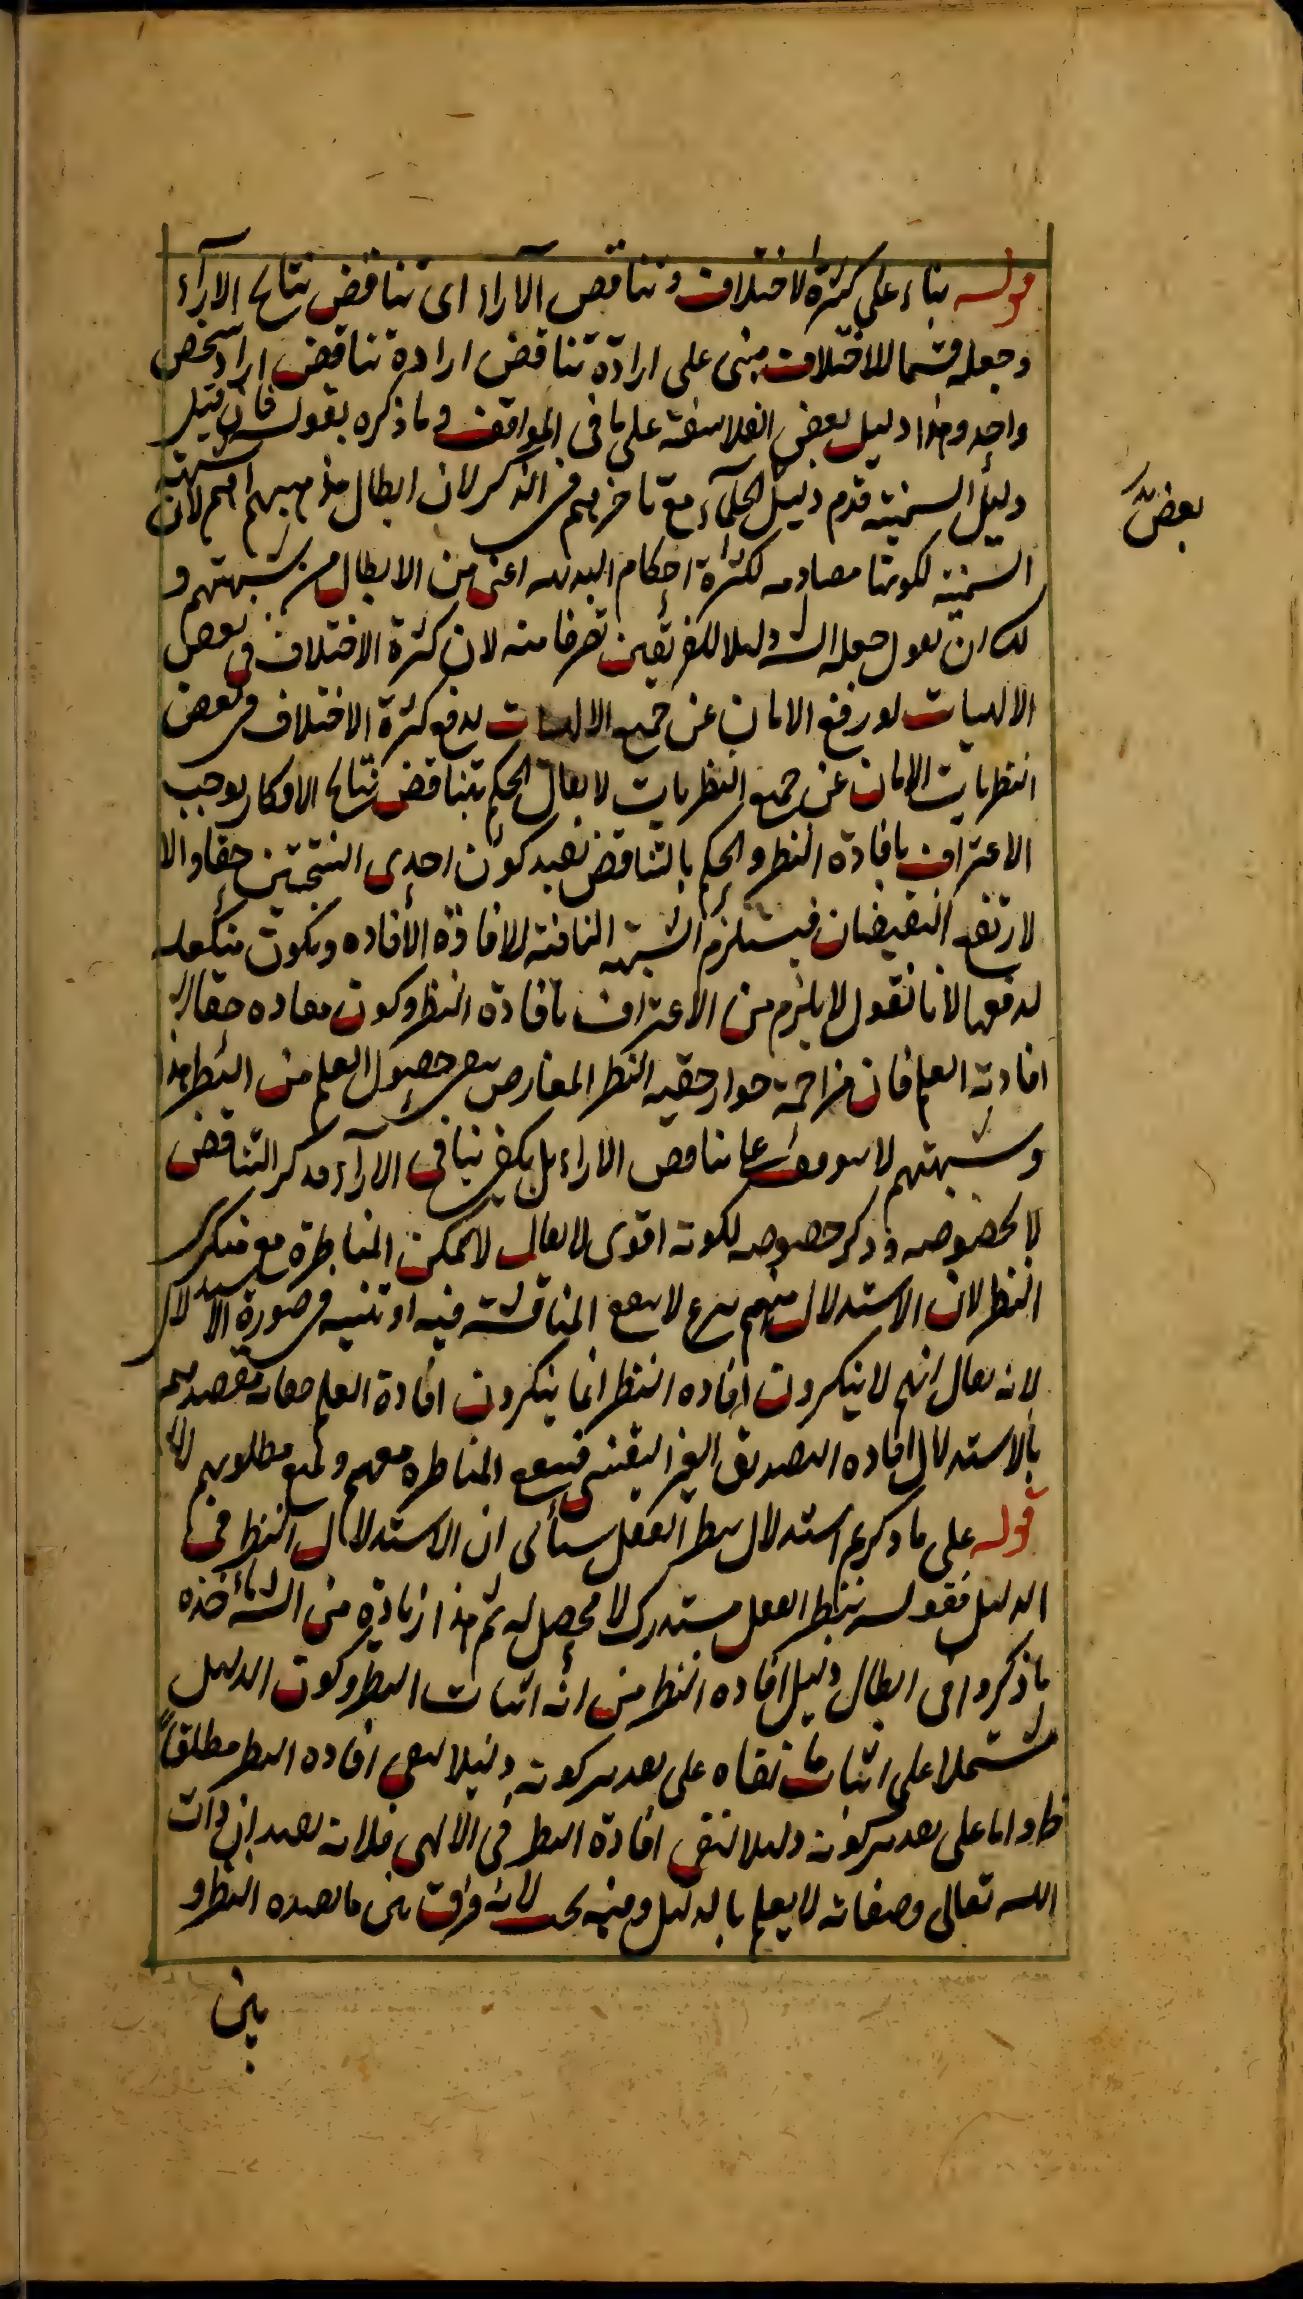 قوله بناء على كثرة الاختلاف و تناقض الآراء اى تناقض نتائج الآراء
وجعله قسما للاختلاف مبنى على ارادة تناقض ارادة تناقض اراء شخص
واحد وهذا دليل بعض الفلاسفة على ما فى المواقف وما ذكره بقوله فان قيل
دليل السمنية قدم دليل الحكماء مع تاخرهم فى الذكر لان ابطال مذهبهم اهم لان شبهة
السمنية لكونها مصادمه لكثرة احكام البديهه اغنى من الابطال من شبهتهم و
لك ان تقول جعله الشـ دليلا للفريقين تصرفا منه لان كثرة الاختلاف فى بعض
الالهيات لو رفع الامان عن جميع الالهيات لرفع كثرة الاختلاف فى بعض
النظريات الامان عن جميع النظريات لا يقال الحكم بتناقض نتائج الافكار يوجب
الاعتراف بافادة النظر والحكم بالتناقض يفيد كون احدى النتيجتين حقا والا
لارتفع النقيضان فيستلزم الشبهة النافية للافادة الافاده ويكون متكفله
لدفعها لانا نقول لا يلزم من الاعتراف بافادة النظر وكون مفاده حقا
افادته العلم فان مزاحمة جواز حقية النظر المعارض ينفى حصول العلم من النظر هذا
وشبهتهم لا يتوقف على تناقض الآراء بل يكفى تنافى الآراء فذكر التناقض
لا لخصوصه وذكر خصوصه لكونه اقوى لا يقال لا يمكن المناظرة مع منكرى
النظر لان الاستدلال منهم لا يسع المناقشة فيه او تنبيه فى صورة الاستدلال
لانه يقال انهم لا ينكرون افاده النظر انما ينكرون افادة العلم مقصدهم
بالاستدلال افاده التصديق الغير اليقينى فيسع المناظره معهم ولمنع مطلوبهم
قوله على ما ذكرتم استدلال بنظر العقل سيأتى ان الاستدلال النظر فى
الدليل فقوله بنظر العقل مستدرك لا محصل له ثم هذا زيادة من الشـ اخذه
ما ذكروا فى ابطال دليل افاده النظر من انه اثبات النظر وكون الدليل
مشتملا على اثبات ما نفاه على تقدير كونه دليلا لنفى افاده النظر مطلقاً
ظ واما على تقدير كونه دليلا لنفى افادة النظر فى الالهى فلانه يفيد ان ذات
الله تعالى وصفاته لا يعلم بالدليل وفيه بحث لانه فرق بين ما يفيده النظر و
بعض
بين